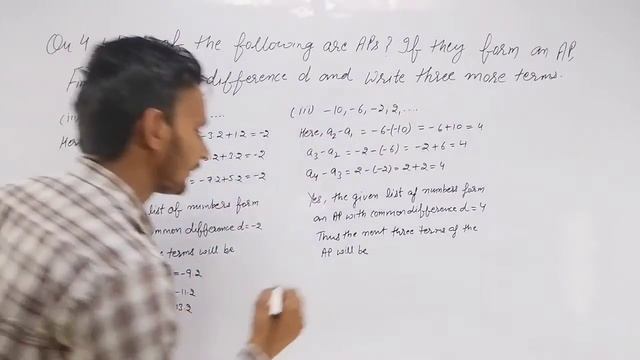 Qu 4 of the following are APs? If they form an AP,
difference d and write three more terms.
(iii) ....
Here, -3.2+1.2 = -2
2+3.2 = -2
= -7.2+5.2 = -2
list of numbers form
common difference d=-2
terms will be
= -9.2
= -11.2
13.2
(iii) -10, -6, -2, 2, ....
Here, a2-a1 = -6-(-10) = -6+10 = 4
a3-a2 = -2-(-6) = -2+6 = 4
a4-a3 = 2-(-2) = 2+2 = 4
Yes, the given list of numbers form
an AP with common difference d=4
Thus the next three terms of the
AP will be